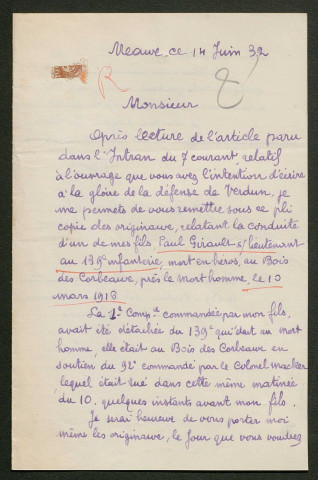 Meaux, ce 14 Juin 32
R
8
Monsieur
Après lecture de l'article paru
dans l'Intran du 7 courant relatif
à l'ouvrage que vous avez l'intention d'écrire
à la gloire de la défense de Verdun, je
me permets de vous remettre sous ce pli
copie des originaux, relatant la conduite
d'un de mes fils, Paul Girault s/lieutenant
au 139e infanterie, mort en héros, au Bois
des Corbeaux, près le Mort homme, le 10
mars 1916
La 1e Comp. commandée par mon fils,
avait été détachée du 139e qui était au mort
homme, elle était au Bois des Corbeaux en
soutien du 92e commandé par le Colonel Macker
lequel était tué dans cette même matinée
du 10. quelques instants avant mon fils.
Je serai heureux de vous porter moi
même les originaux, le Jour que vous voudrez